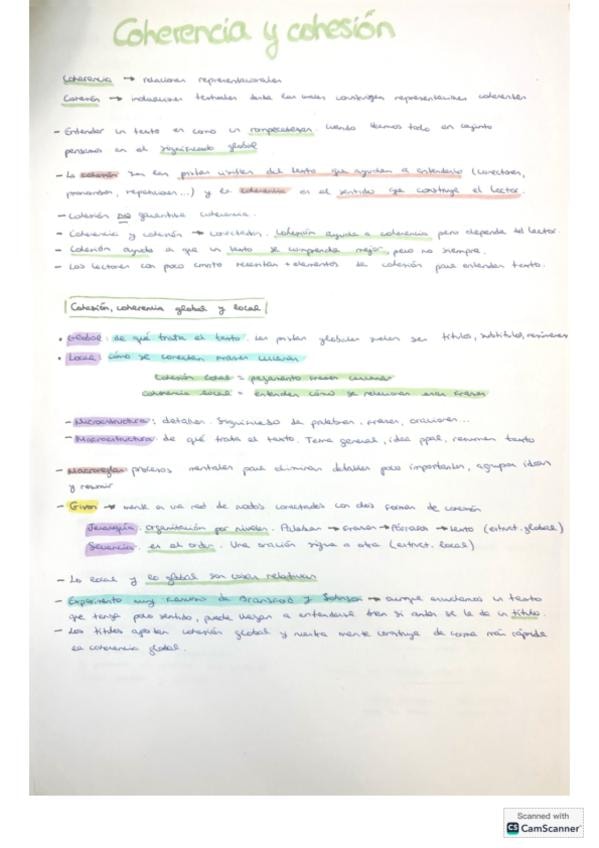 Coherencia y cohesión
Coherencia → relaciones representacionales
Cohesión → indicaciones textuales desde las cuales construyen representaciones coherentes
- Entender un texto es como un rompecabezas. Cuando vemos todo en conjunto
pensamos en el significado global
- La cohesión son las pistas visibles del texto que ayudan a entenderlo (conectores,
pronombres, repeticiones...) y la coherencia es el sentido que construye el lector.
- Cohesión no garantiza coherencia.
- Coherencia y cohesión → conectados. Cohesión ayuda a coherencia pero depende del lector.
- Cohesión ayuda a que un texto se comprenda mejor, pero no siempre.
- Los lectores con poco cmto necesitan + elementos de cohesión para entender texto.
Cohesión, coherencia global y local
• Global: de qué trata el texto. Las pistas globales suelen ser títulos, subtítulos, resúmenes
• Local: cómo se conectan frases cercanas
Cohesión local = pegamento frases cercanas
Coherencia local = entender cómo se relacionan esas frases
- Microestructura: detalles. Significado de palabras, frases, oraciones...
- Macroestructura: de qué trata el texto. Tema general, idea ppal, resumen texto
- Macroreglas: procesos mentales para eliminar detalles poco importantes, agrupar ideas
y resumir
- Givon → mente es una red de nodos conectados con dos formas de conexión
Jerarquía: organización por niveles. Palabras → Frases → Párrafos → texto (estruct. global)
Secuencia: es el orden. Una oración sigue a otra (estruct. local)
- Lo local y lo global son cosas relativas
- Experimento muy famoso de Bransford y Johnson → aunque escuchamos un texto
que tenga poco sentido, puede llegar a entenderse bien si antes se le da un título.
- Los títulos aportan cohesión global y nuestra mente construye de forma más rápida
la coherencia global.
Scanned with
CS CamScanner